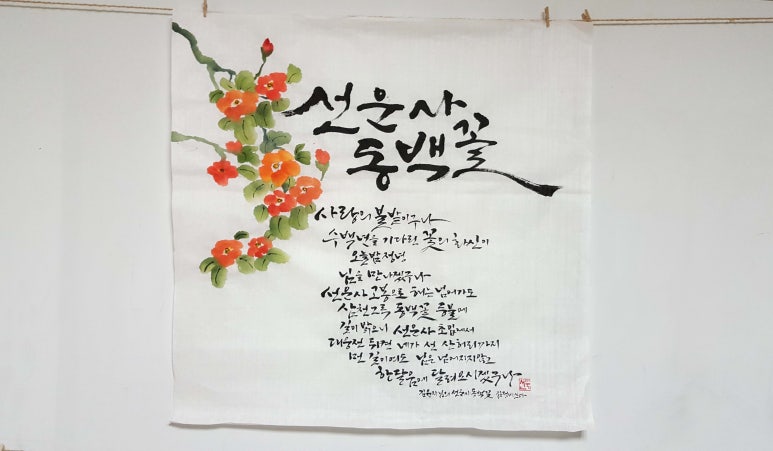 선운사
동백꽃
사랑의 불밭이구나
수백년을 기다린 꽃의 화신이
오늘밤 정녕
님을 만나겠구나
선운사 고봉으로 해는 넘어가도
삼천그루 동백꽃 등불에
길이 밝으니 선운사 초입에서
대웅전 뒤켠 네가 선 산허리까지
먼 길이여도 님은 넘어지지 않고
한달음에 달려오시겠구나
선운사 동백꽃